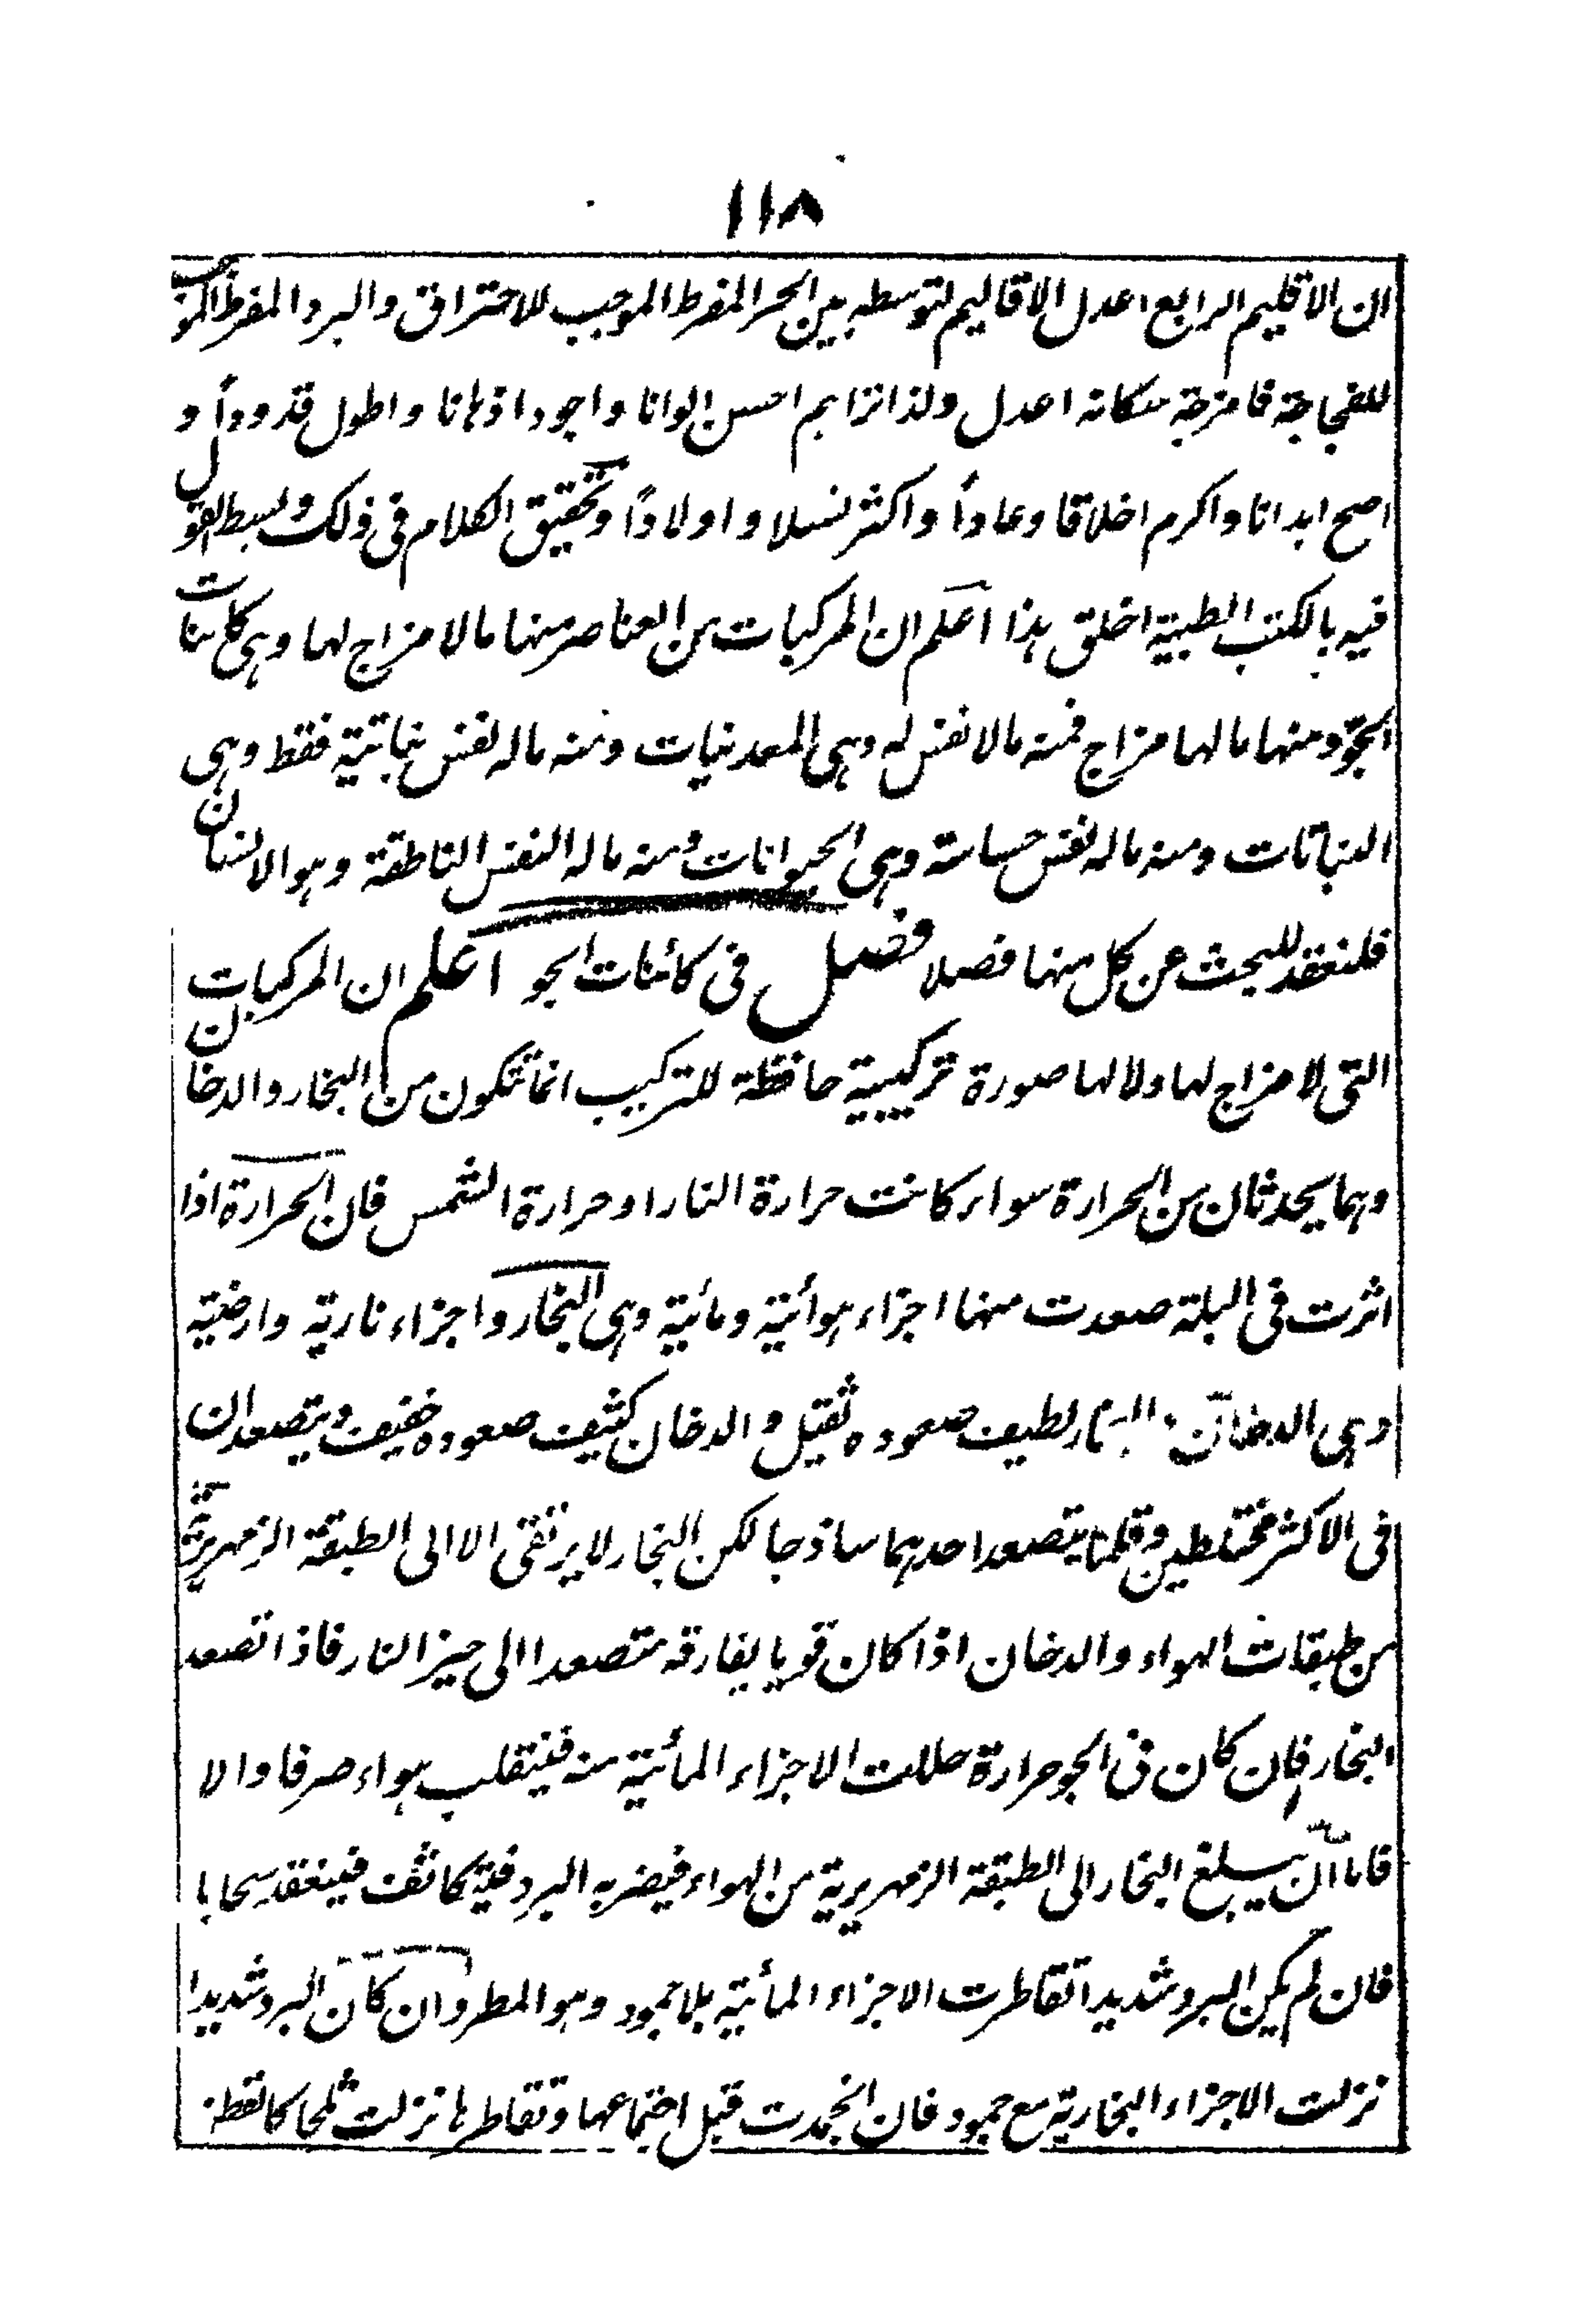 ١١٨
ان الاقليم الرابع اعدل الاقاليم لتوسطه بين الحر المفرط الموجب للاحتراق والبرد المفرط الموجب
للفجاجة فامزجة سكانه اعدل ولذا ترا هم احسن الوانا واجود اذهانا واطول قدودا و
اصح ابدانا واكرم اخلاقا وعاداً واكثر نسلا واولاداً وتحقيق الكلام فى ذلك وبسط القول
فيه بالكتب الطبية اخلق هذا اعلم ان المركبات من العناصر منها ما لا مزاج لها وهى كاينات
الجوّ ومنها ما لها مزاج فمنه ما لا نفس له وهى المعدنيات ومنه ما له نفس نباتية فقط وهى
النباتات ومنه ما له نفس حساسة وهى الحيوانات ومنه ما له النفس الناطقة وهو الانسان
فلنعقد للبحث عن كل منها فصلا فصل فى كائنات الجو اعلم ان المركبات
التى لا مزاج لها ولا لها صورة تركيبية حافظة للتركيب انما تتكون من البخار والدخان
وهما يحدثان من الحرارة سواء كانت حرارة النار او حرارة الشمس فان الحرارة اذا
اثرت فى البلة صعدت منها اجزاء هوائية ومائية وهى البخار واجزاء نارية وارضية
وهى الدخان البخار لطيف صعوده ثقيل والدخان كثيف صعوده خفيف ويتصعدان
فى الاكثر مختلطين وقلما يتصعد احدهما ساذجا لكن البخار لا يرتقى الا الى الطبقة الزمهريرية
من طبقات الهواء والدخان اذا كان قويا يفارقه متصعدا الى حيز النار فاذا تصعد
البخار فان كان فى الجو حرارة حللت الاجزاء المائية منه فينقلب هواء صرفا والا
فاما ان يبلغ البخار الى الطبقة الزمهريرية من الهواء فيضربه البرد فيتكاثف فينعقد سحابا
فان لم يكن البرد شديدا تقاطرت الاجزاء المائية بلا جمود وهو المطر وان كان البرد شديدا
نزلت الاجزاء البخارية مع جمود فان انجمدت قبل اجتماعها وتقاطرها نزلت ثلجا كالقطن